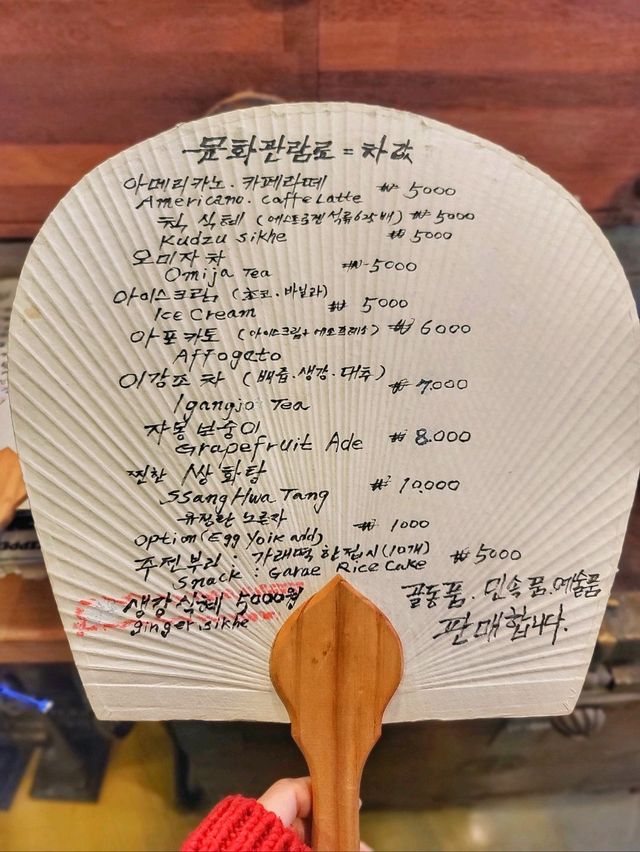 문화관람료 = 차값
아메리카노. 카페라떼 ₩ 5000
Americano. Caffe Latte
칡 식혜 (에스트로겐 석류6각 배) ₩ 5000
Kudzu Sikhe ₩ 5000
오미자 차
Omija Tea ₩ 5000
아이스크림 (초코. 바닐라)
Ice Cream ₩ 5000
아포카토 (아이스크림+에스프레소) ₩ 6000
Affogato
이강조 차 (배즙. 생강. 대추) ₩ 7,000
Igangjo Tea
자몽 보숭이
Grapefruit Ade ₩ 8.000
찐한 쌍화탕
SSangHwa Tang ₩ 10,000
유정란 노른자 ₩ 1000
Option (Egg Yoik add)
주전부리 : 가래떡 한접시(10개) ₩ 5000
Snack : Garae Rice Cake
생강식혜 5000원
ginger sikhe
골동품. 민속품. 예술품
판매합니다.